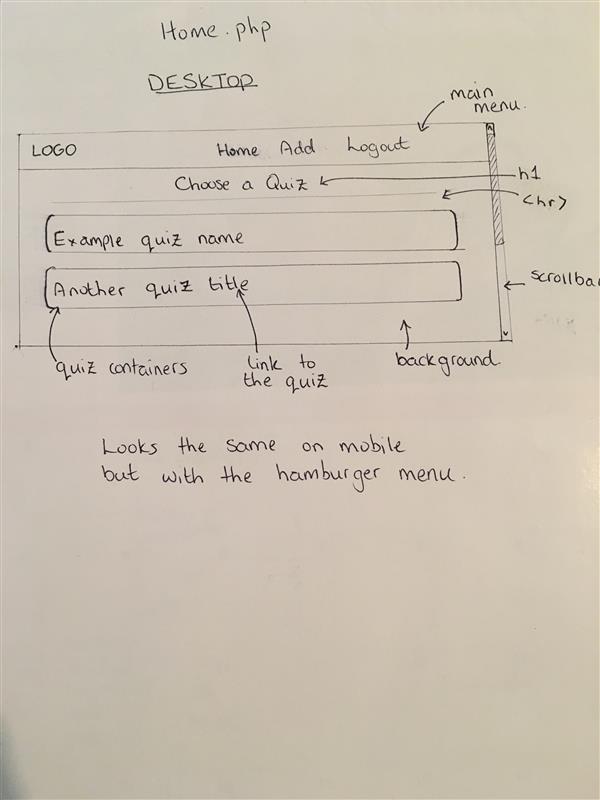 Home.php
DESKTOP
main
menu.
LOGO Home Add Logout
Choose a Quiz
h1
<hr>
Example quiz name
Another quiz title
quiz containers
link to
the quiz
background
Looks the same on mobile
but with the hamburger menu.